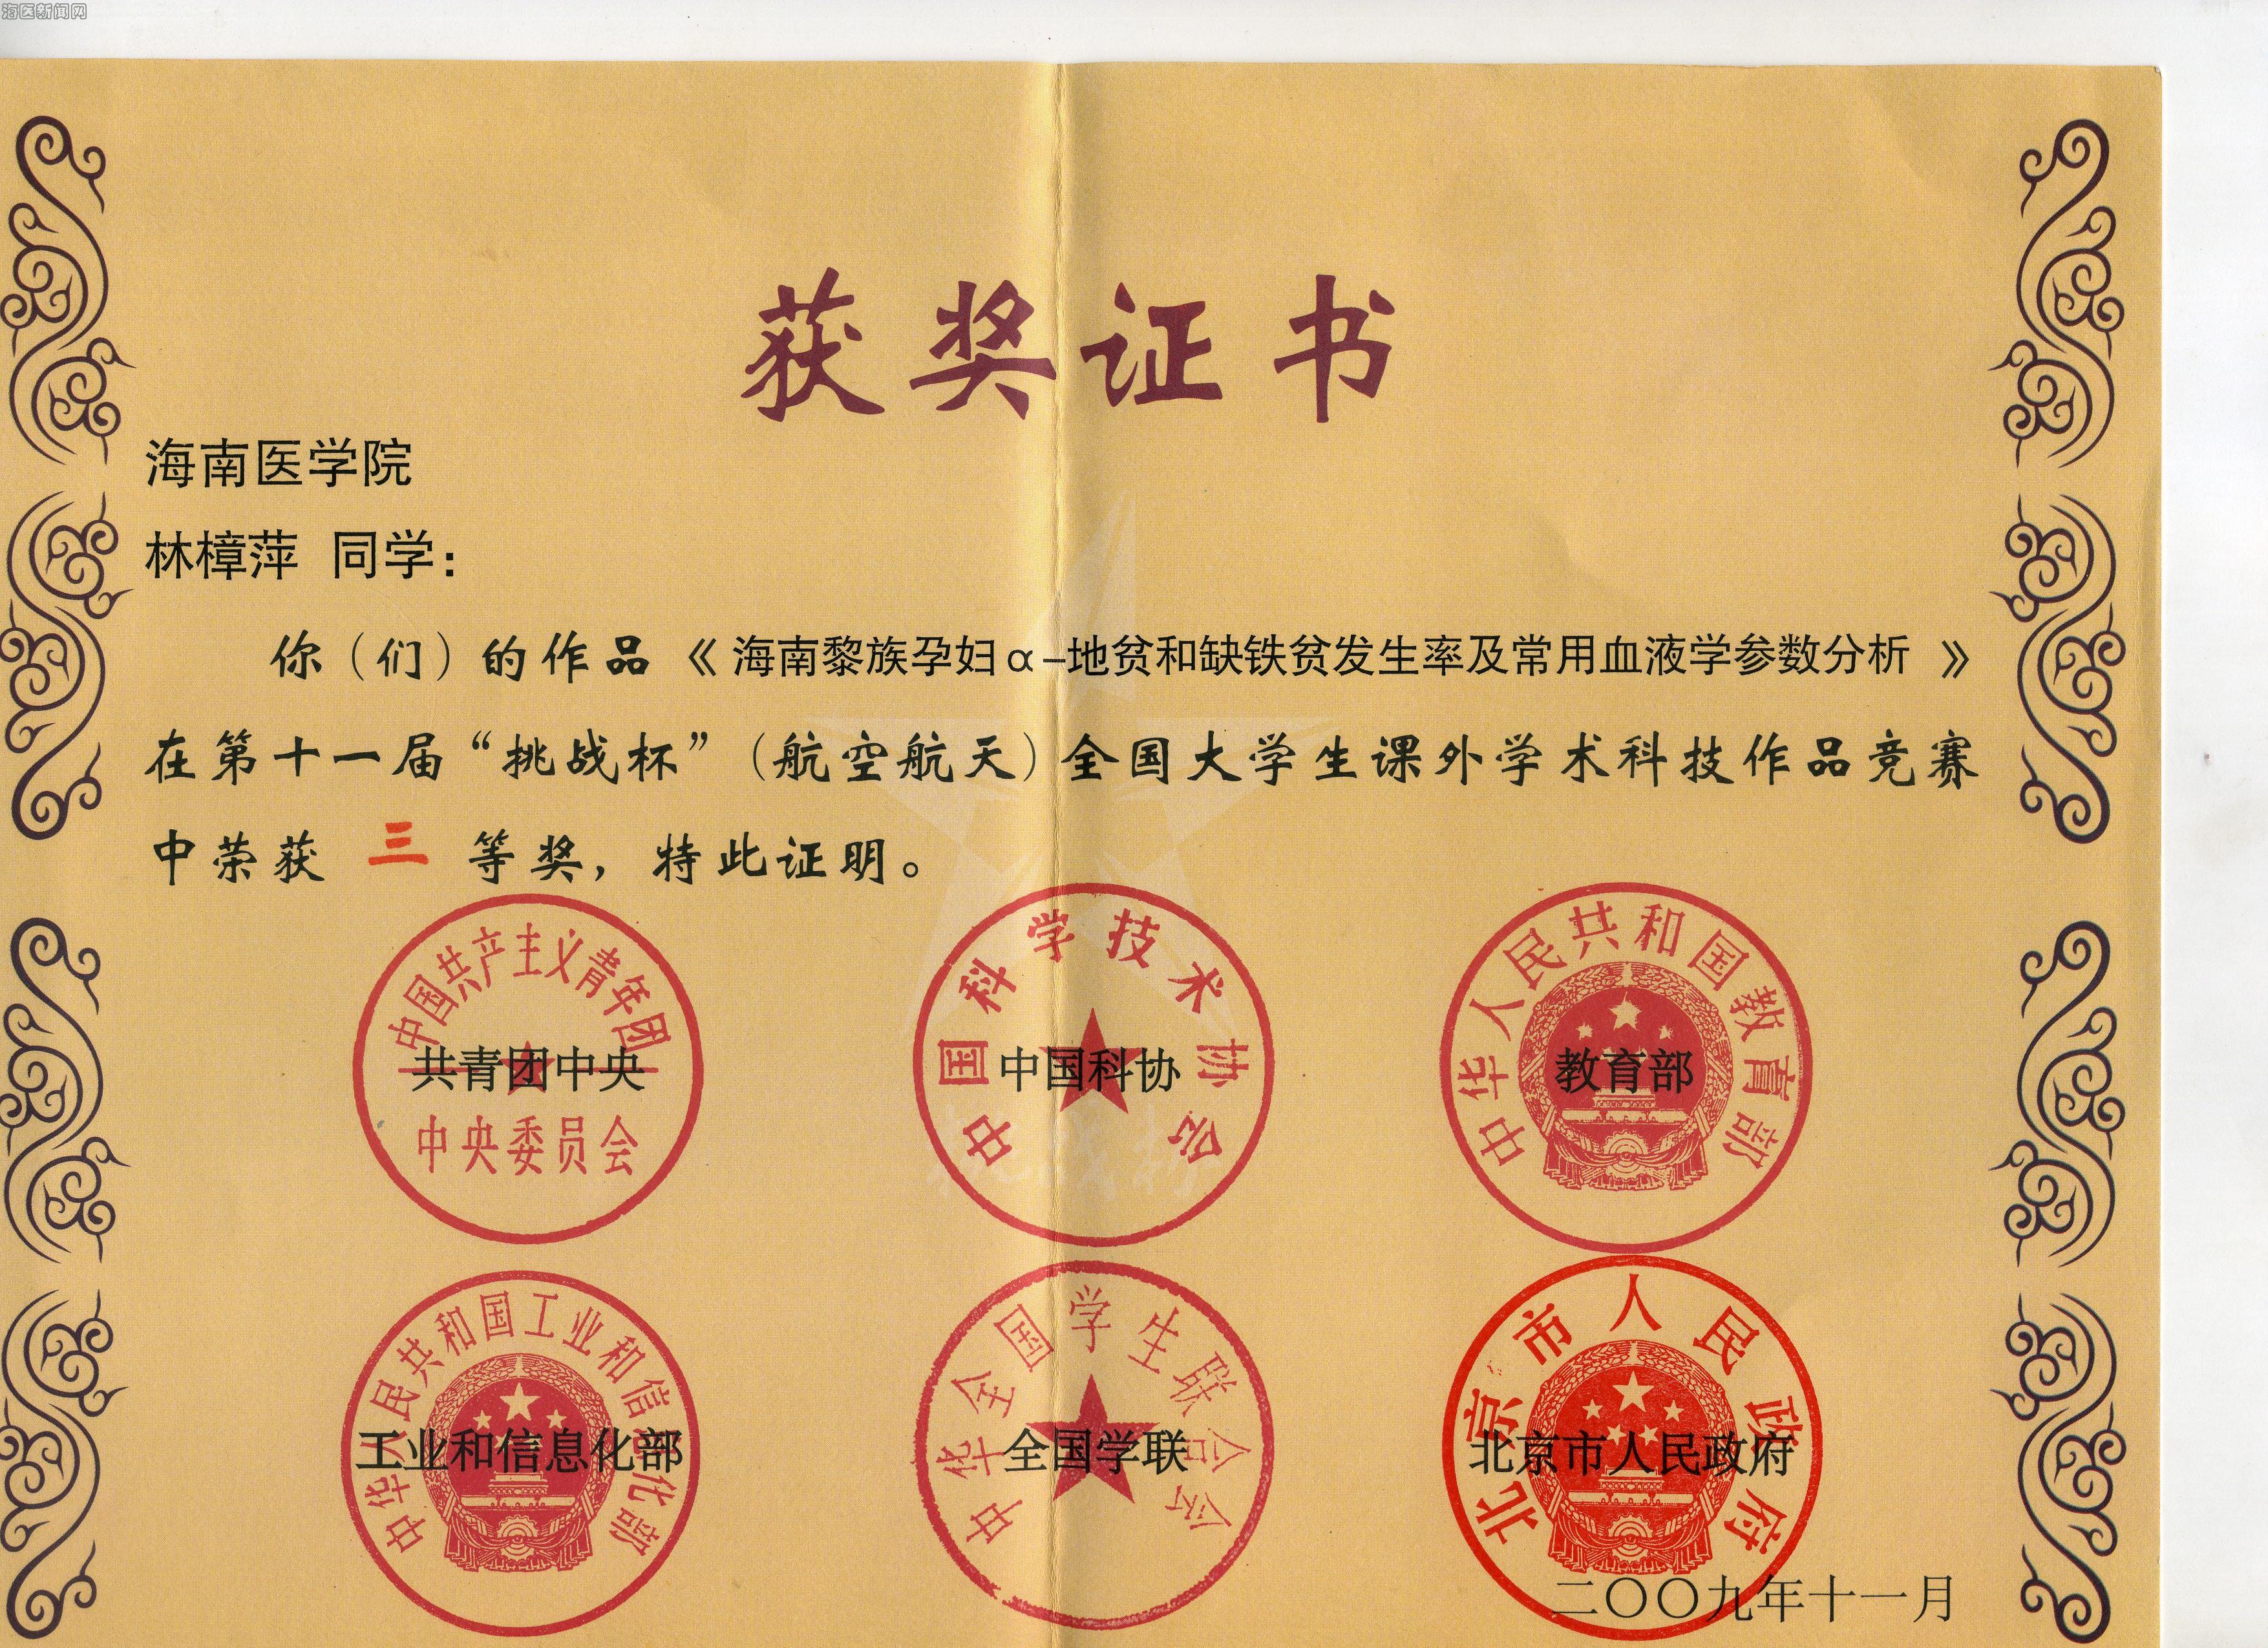 海医新闻网
获奖证书
海南医学院
林樟萍 同学：
你（们）的作品《海南黎族孕妇α-地贫和缺铁贫发生率及常用血液学参数分析》
在第十一届“挑战杯”（航空航天）全国大学生课外学术科技作品竞赛
中荣获 三 等奖，特此证明。
中国共产主义青年团
共青团中央
中央委员会
中国科学技术协会
中国科协
中华人民共和国教育部
教育部
挑战杯
中华人民共和国工业和信息化部
工业和信息化部
中华全国学生联合会
全国学联
北京市人民政府
北京市人民政府
二〇〇九年十一月